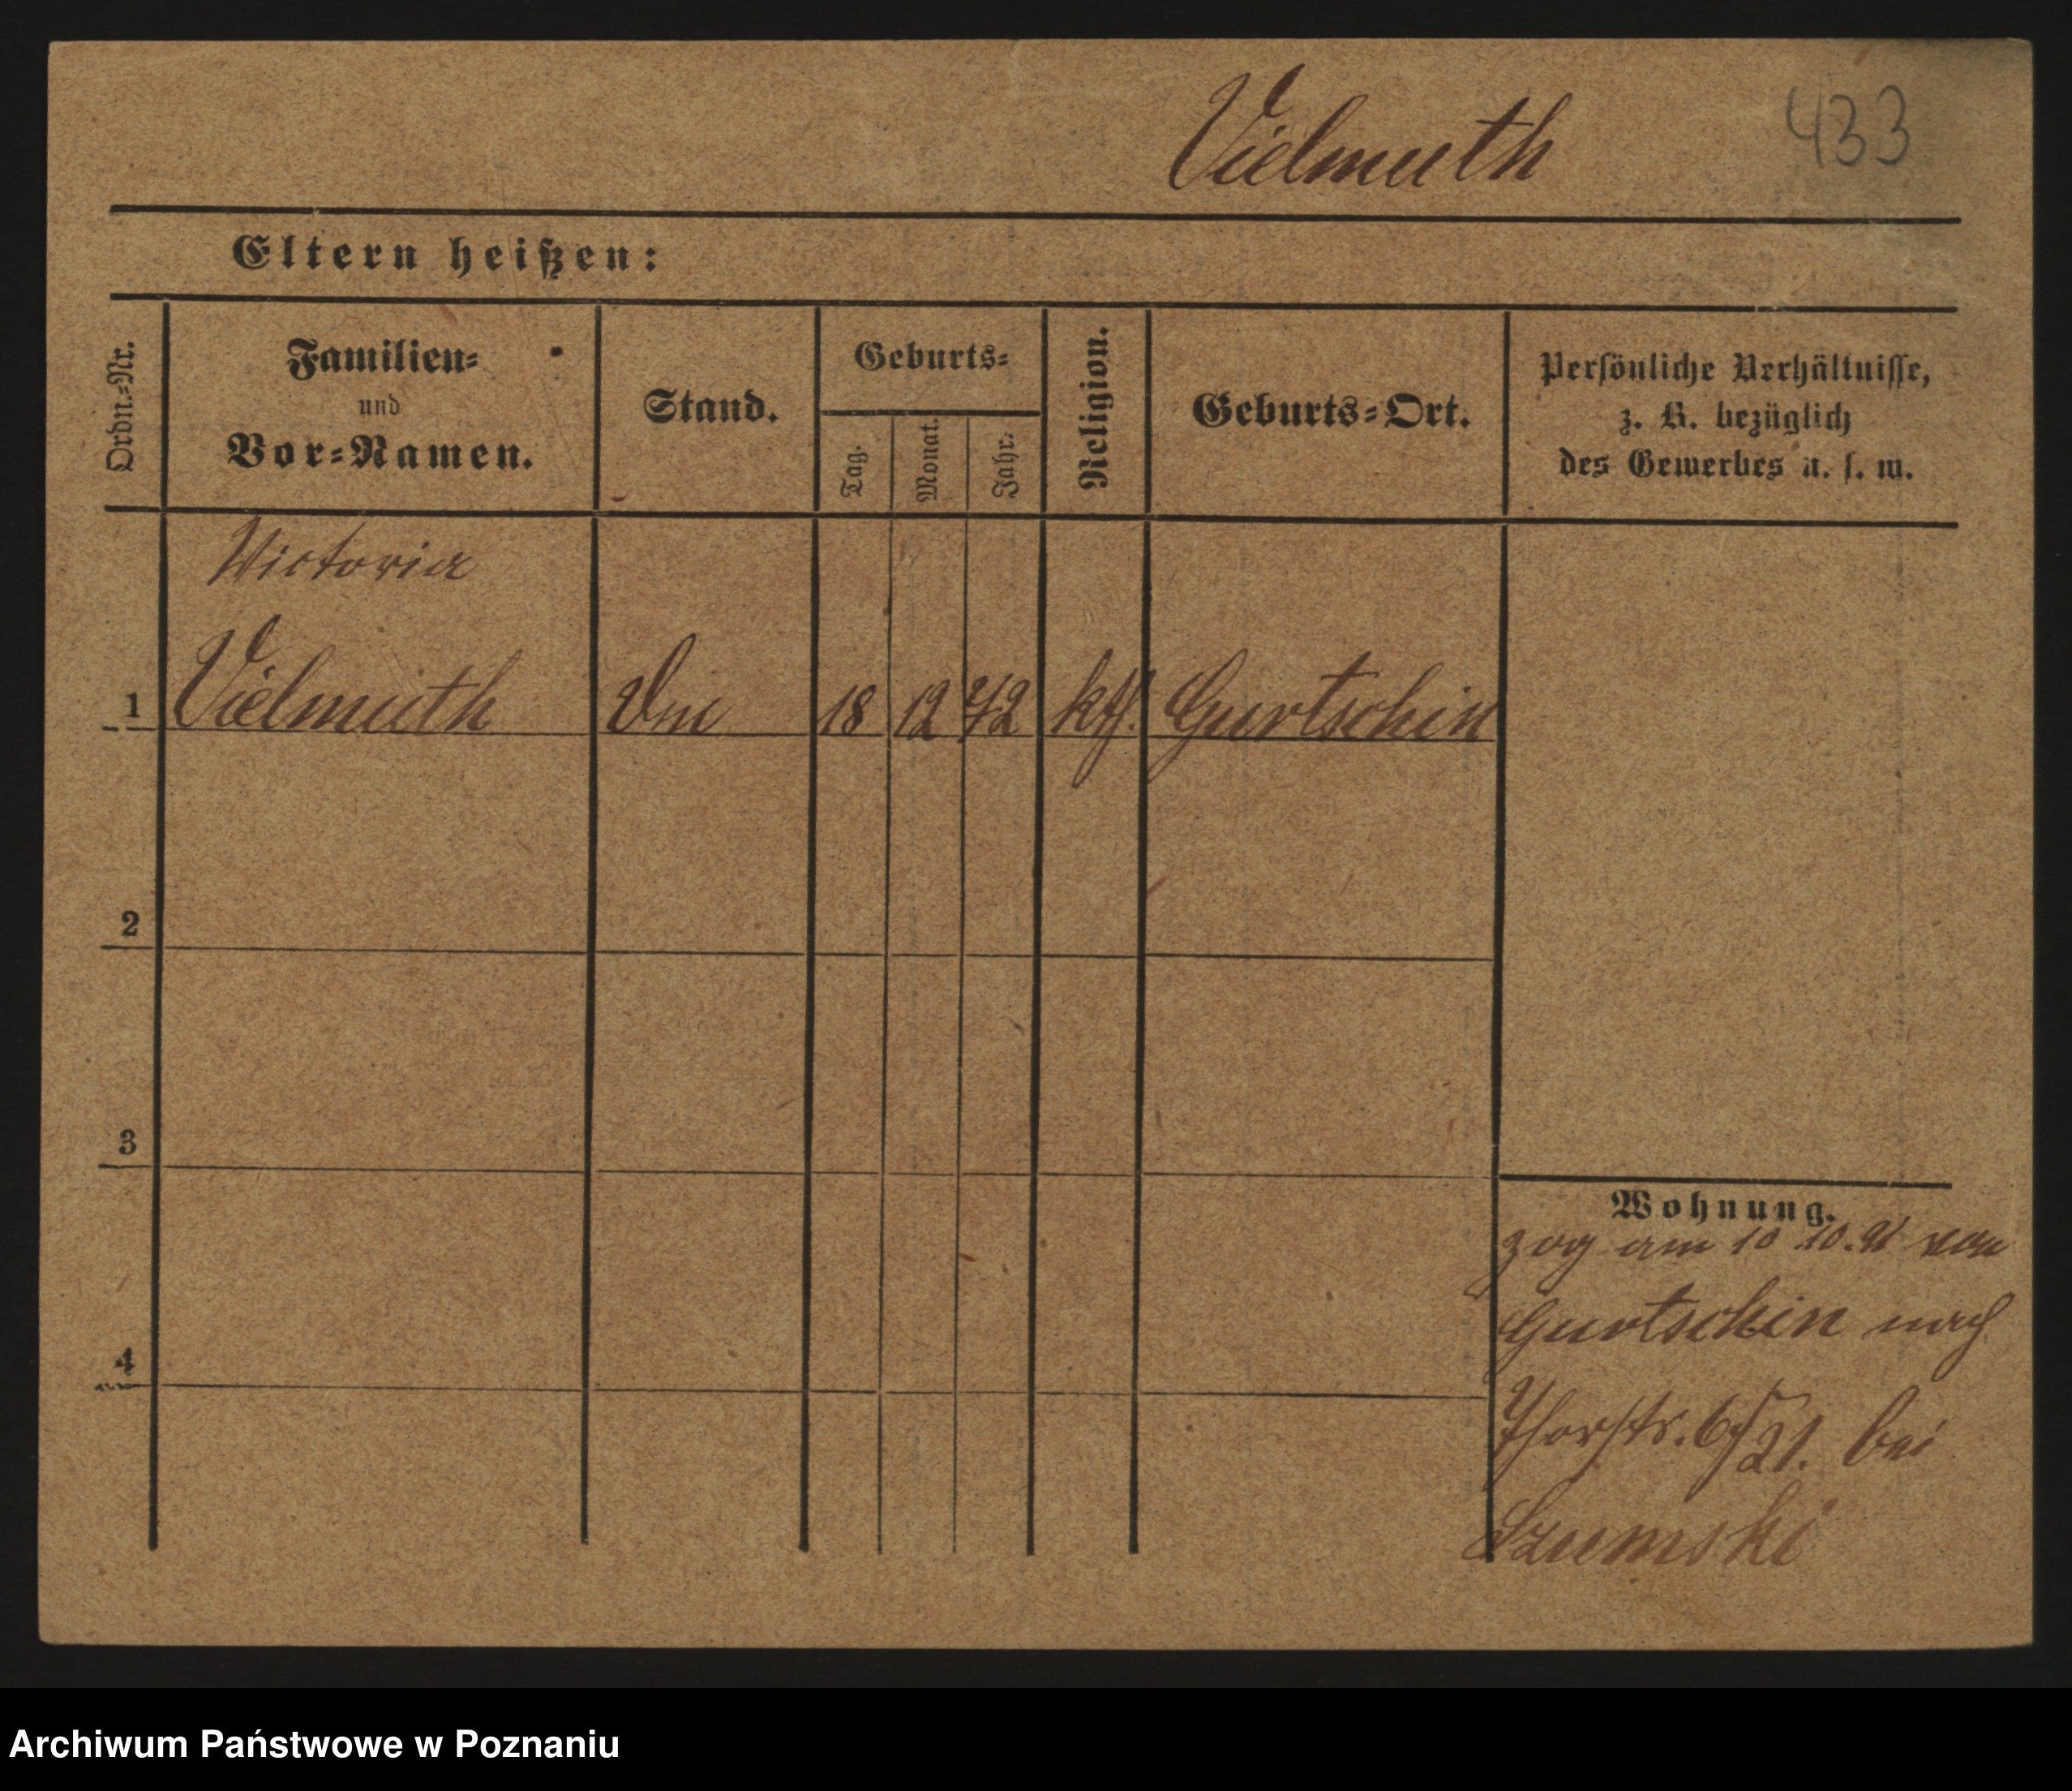 Vielmuth
433
Eltern heißen:
Ordn.-Nr.
Familien-
und
Vor-Namen.
Stand.
Geburts-
Tag.
Monat.
Jahr.
Religion.
Geburts-Ort.
Persönliche Verhältnisse,
z. B. bezüglich
des Gewerbes u. s. w.
Victoria
1 Vielmuth 18 12 72 kth. Gurtschin
2
3
4
Wohnung.
zog am 10 10. 91 von
Gurtschin nach
bei
Szumski
Archiwum Państwowe w Poznaniu